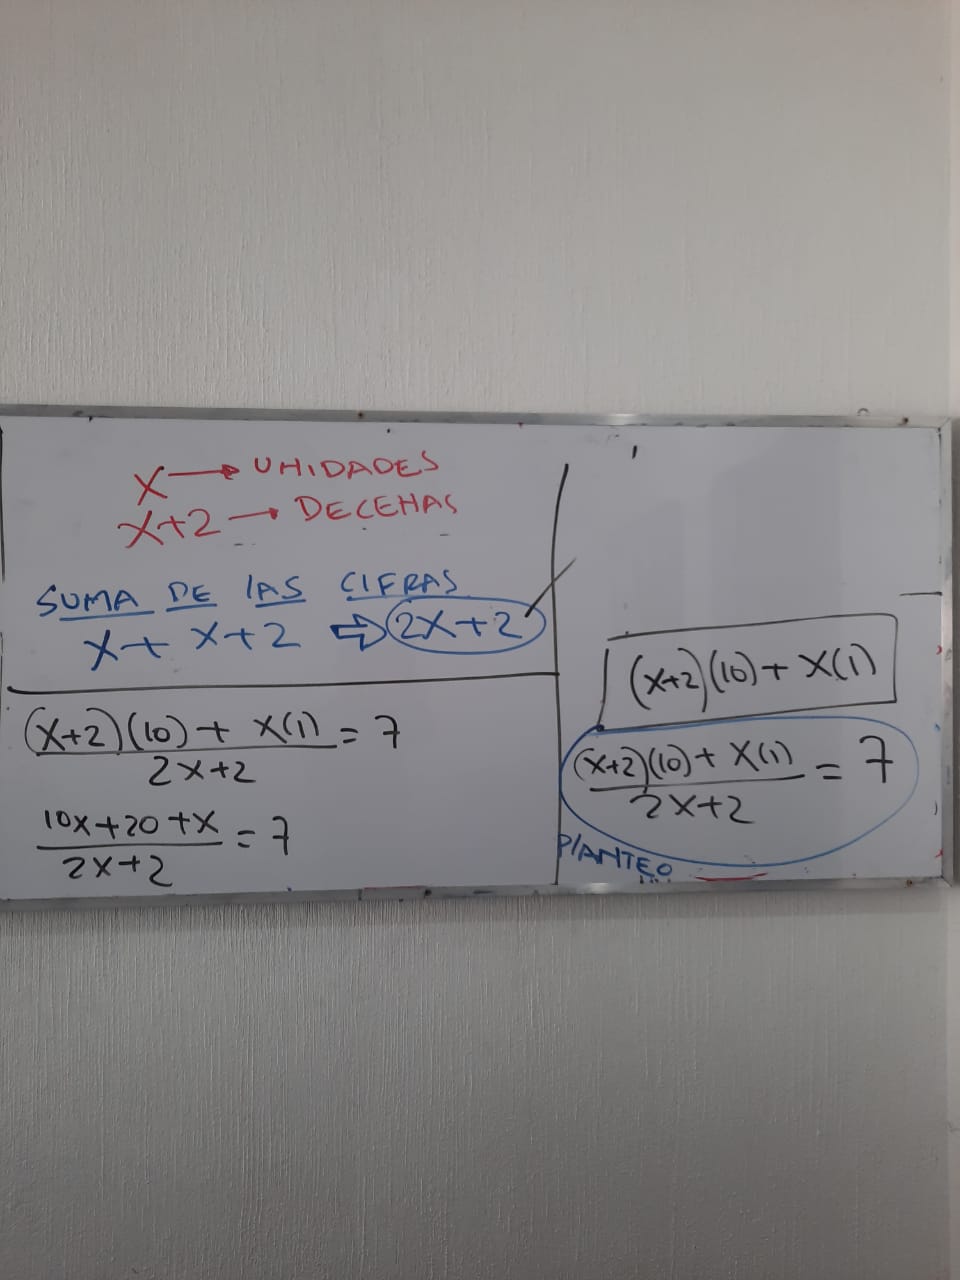 X → UNIDADES
X+2 → DECENAS
SUMA DE LAS CIFRAS
X + X+2 ⇨ 2X+2
(X+2)(10) + X(1) = 7
2X+2
10X+20+X = 7
2X+2
(X+2)(10) + X(1)
(X+2)(10) + X(1) = 7
2X+2
PLANTEO